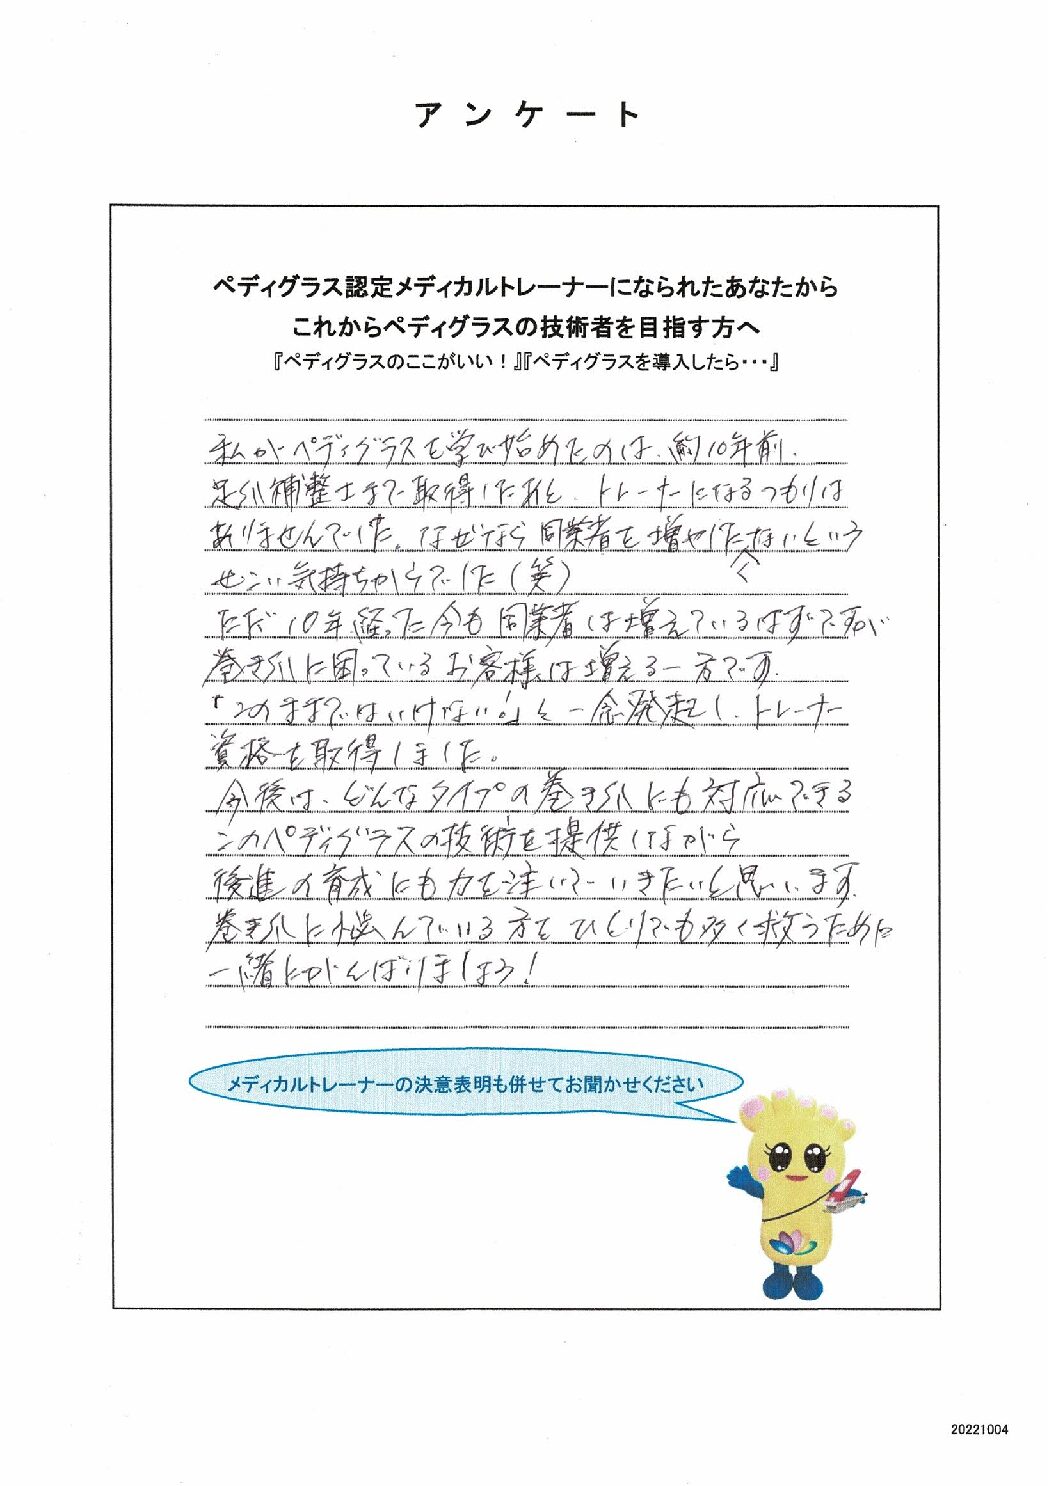 アンケート
ペディグラス認定メディカルトレーナーになられたあなたから
これからペディグラスの技術者を目指す方へ
『ペディグラスのここがいい！』『ペディグラスを導入したら・・・』
私がペディグラスを学び始めたのは、約10年前.
足爪補整士まで取得したあと、トレーナーになるつもりは
ありませんでした。なぜなら同業者を増やしたくないという
せこい気持ちからでした(笑)
ただ10年経った今も同業者は増えているはずですが
巻き爪に困っているお客様は増える一方です.
「このままではいけない!」と一念発起し、トレーナー
資格を取得しました。
今後は、どんなタイプの巻き爪にも対応できる
このペディグラスの技術を提供しながら
後進の育成にも力を注いでいきたいと思います.
巻き爪に悩んでいる方をひとりでも多く救うために
一緒にがんばりましょう!
メディカルトレーナーの決意表明も併せてお聞かせください
20221004